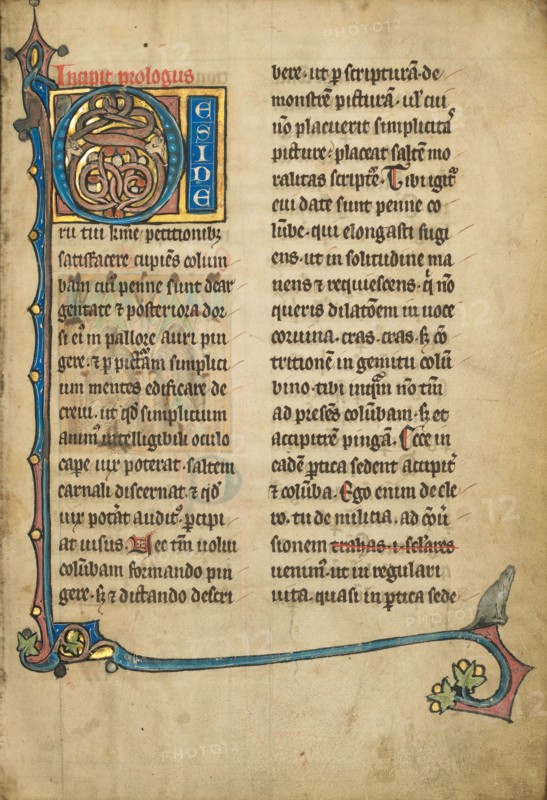 Incipit prologus
DESIDE
rii tui kr̄me petitionibȝ
satisfacere cupiēs colum
bam cuiꝰ penne sunt dear
gentate ⁊ posteriora dor
si eiꝰ in pallore auri pin
gere. ⁊ ꝑ picturam simplici
um mentes edificare de
creui. ut qd̓ simplicium
animꝰ intelligibili oculo
capẽ uix poterat. saltem
carnali discernat. ⁊ qd̓
uix potat̓ auditꝰ. ꝑcipi
at uisus. Nec tm̄ uolui
colūbam formando pin
gere. sȝ ⁊ dictando descri
bere. ut ꝑ scripturā. de
monstrē picturā. ul̓ cui
nō placuerit simplicitas
picture. placeat saltē mo
ralitas scripte̓. Tibi igit̓
cui date sunt penne co
lūbe. qui elongasti fugi
ens. ut in solitudine ma
neres ⁊ requiescens. q̓ nō
queris dilatōem in uoce
coruina. cras. cras. sȝ cō
tritionē in gemitu colū
bino. tibi inquā nō tm̄
ad presēs colūbam. sȝ et
accipitrē pingā. Ecce in
eadē ꝑtica sedent accipit̓
⁊ colūba. Ego enim de cle
ro. tu de milicia. ad cōu̓
sionem trahas. i. sclares
uenimꝰ. ut in regulari
uita. quasi in ꝑtica sede